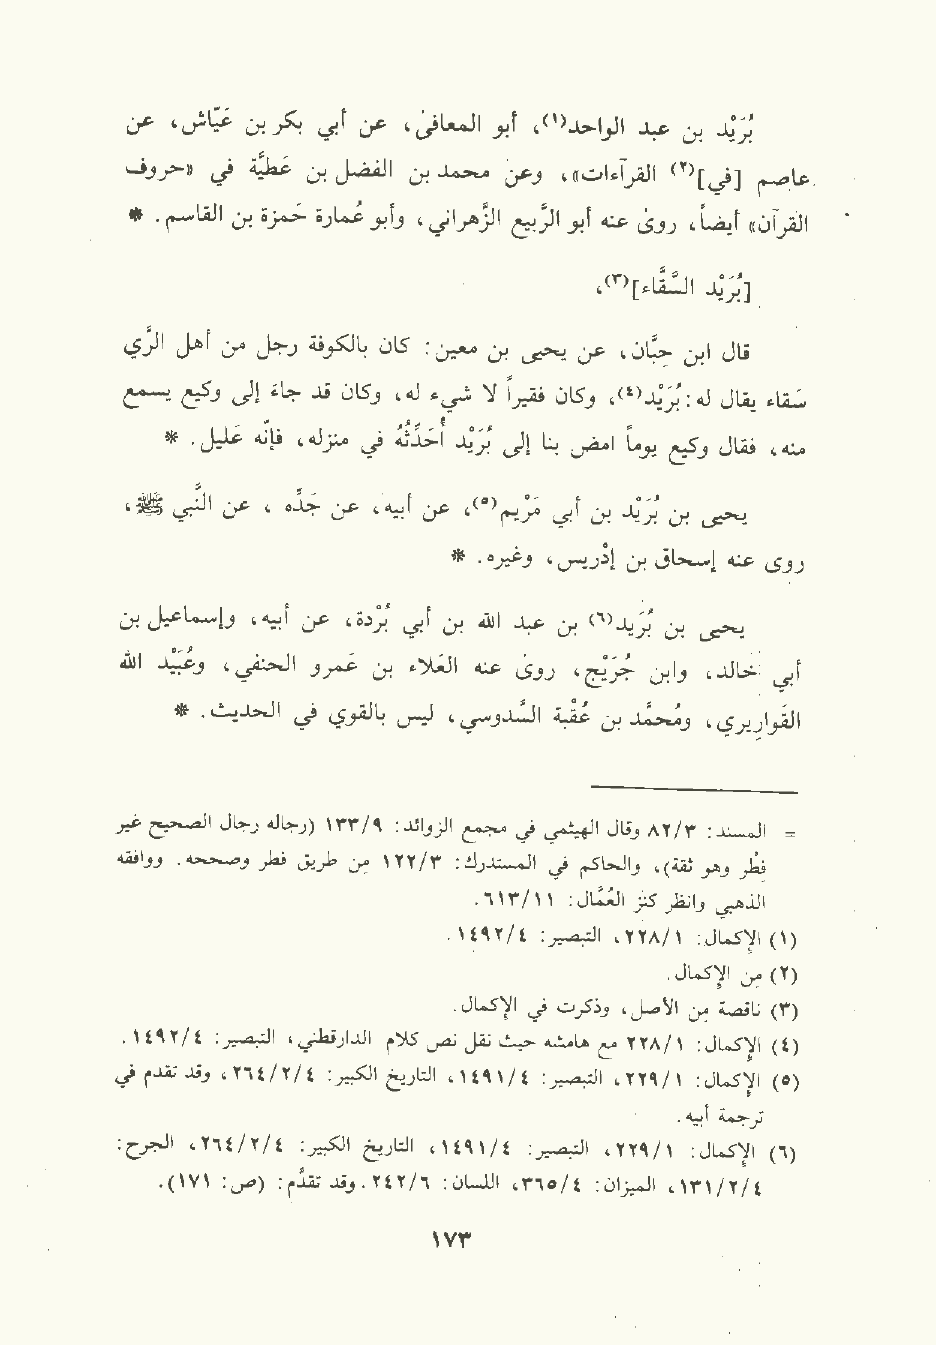 بُرَيْد بن عبد الواحد(١)، أبو المعافىٰ، عن أبي بكر بن عَيّاش، عن
عاصم [في](٢) القرآءات»، وعن محمد بن الفضل بن عَطيَّة في «حروف
القرآن» أيضاً، روىٰ عنه أبو الرَّبيع الزَّهراني، وأبو عُمارة حَمزة بن القاسم. *
[بُرَيْد السَّقَّاء](٣)،
قال ابن حِبَّان، عن يحيى بن معين: كان بالكوفة رجل من أهل الرَّي
سَقاء يقال له: بُرَيْد(٤)، وكان فقيراً لا شيء له، وكان قد جاءَ إلى وكيع يسمع
منه، فقال وكيع يوماً امض بنا إلى بُرَيْد أُحَدِّثهُ في منزله، فإنّه عَليل. *
يحيى بن بُرَيْد بن أبي مَرْيم(٥)، عن أبيه، عن جَدِّه، عن النَّبي ﷺ،
روى عنه إسحاق بن إدْريس، وغيره. *
يحيى بن بُرَيد(٦) بن عبد الله بن أبي بُرْدة، عن أبيه، وإسماعيل بن
أبي خالد، وابن جُرَيْج، روىٰ عنه العَلاء بن عَمرو الحنفي، وعُبَيْد الله
القَوارِيري، ومُحمَّد بن عُقبة السَّدوسي، ليس بالقوي في الحديث. *
= المسند: ٨٢/٣ وقال الهيثمي في مجمع الزوائد: ١٣٣/٩ (رجاله رجال الصحيح غير
فِطْر وهو ثقة)، والحاكم في المستدرك: ١٢٢/٣ من طريق فطر وصححه. ووافقه
الذهبي وانظر كنز العُمَّال: ٦١٣/١١.
(١) الإكمال: ٢٢٨/١، التبصير: ١٤٩٢/٤.
(٢) من الإكمال.
(٣) ناقصة من الأصل، وذكرت في الإكمال.
(٤) الإكمال: ٢٢٨/١ مع هامشه حيث نقل نص كلام الدارقطني، التبصير: ١٤٩٢/٤.
(٥) الإكمال: ٢٢٩/١، التبصير: ١٤٩١/٤، التاريخ الكبير: ٢٦٤/٢/٤، وقد تقدم في
ترجمة أبيه.
(٦) الإكمال: ٢٢٩/١، التبصير: ١٤٩١/٤، التاريخ الكبير: ٢٦٤/٢/٤، الجرح:
١٣١/٢/٤، الميزان: ٣٦٥/٤، اللسان: ٢٤٢/٦. وقد تقدَّم: (ص: ١٧١).
١٧٣